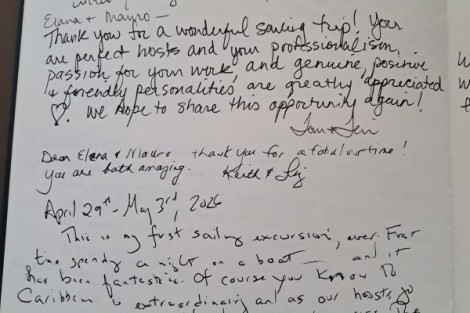 Elena + Mauro —
Thank you for a wonderful sailing trip! You
are perfect hosts and your professionalism,
passion for your work, and genuine, positive
+ friendly personalities are greatly appreciated
♡. We hope to share this opportunity again!
Dear Elena & Mauro thank you for a fabulous time!
you are both amazing. Keith &
April 29th - May 3rd, 2026
This is my first sailing excursion, ever. First
time spending a night on a boat — and it
has been fantastic. Of course you know
Caribbean is extraordinary and as our hosts,